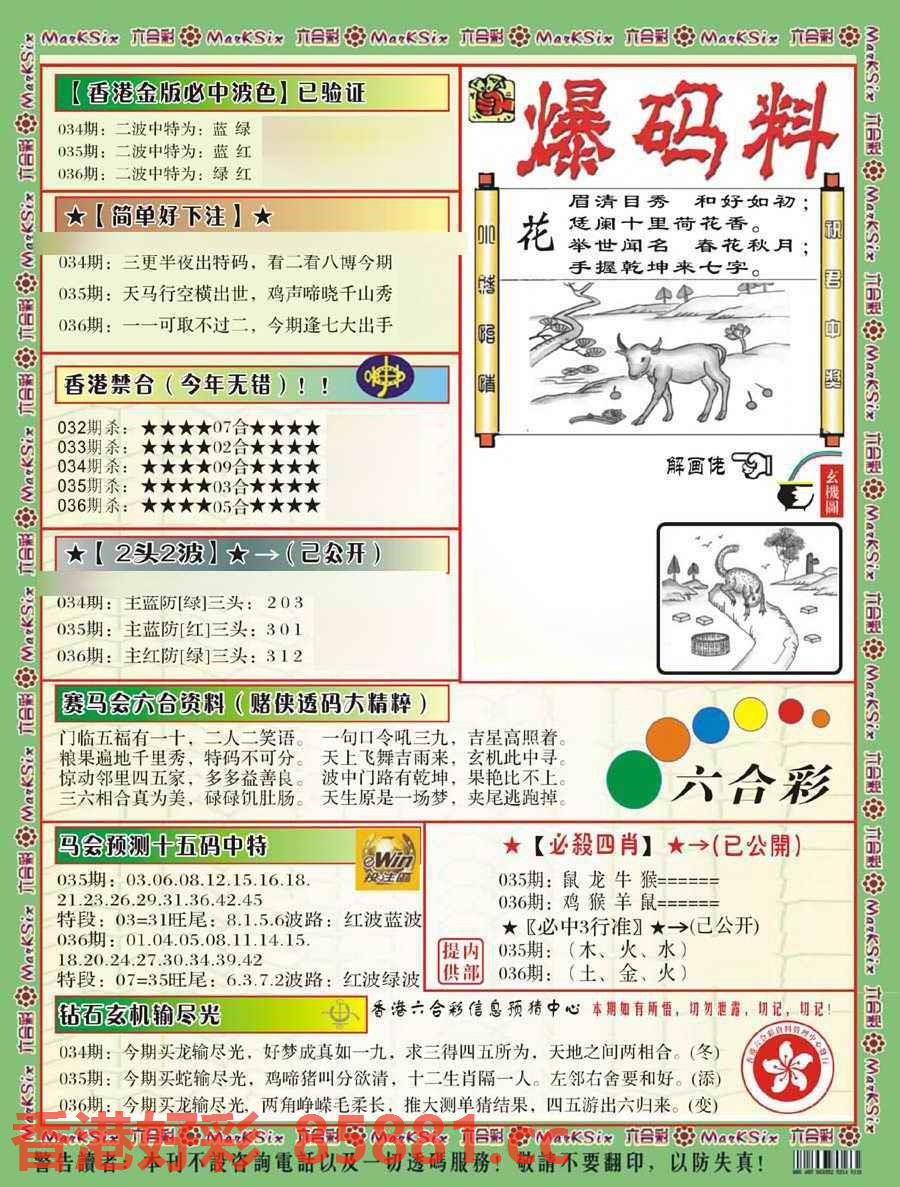 MarKSix 六合彩 MarKSix 六合彩 MarKSix 六合彩 MarKSix 六合彩 MarKSix 六合彩
【香港金版必中波色】已验证
034期：二波中特为：蓝 绿
035期：二波中特为：蓝 红
036期：二波中特为：绿 红
★【简单好下注】★
034期：三更半夜出特码，看二看八博今期
035期：天马行空横出世，鸡声啼晓千山秀
036期：一一可取不过二，今期逢七大出手
香港禁合（今年无错）！！
032期杀：★★★★07合★★★★
033期杀：★★★★02合★★★★
034期杀：★★★★09合★★★★
035期杀：★★★★03合★★★★
036期杀：★★★★05合★★★★
★【2头2波】★→（已公开）
034期：主蓝防[绿]三头：203
035期：主蓝防[红]三头：301
036期：主红防[绿]三头：312
爆码料
花
眉清目秀 和好如初；
恁阑十里荷花香。
举世闻名 春花秋月；
手握乾坤来七字。
祝君中奖
解画佬
玄機圖
赛马会六合资料（赌侠透码大精粹）
门临五福有一十，二人二笑语。 一句口令吼三九，吉星高照着。
粮果遍地千里秀，特码不可分。 天上飞舞吉雨来，玄机此中寻。
惊动邻里四五家，多多益善良。 波中门路有乾坤，果艳比不上。
三六相合真为美，碌碌饥肚肠。 天生原是一场梦，夹尾逃跑掉。
六合彩
马会预测十五码中特
eWin
投注區
035期：03.06.08.12.15.16.18.
21.23.26.29.31.36.42.45
特段：03=31旺尾：8.1.5.6波路：红波蓝波
036期：01.04.05.08.11.14.15.
18.20.24.27.30.34.39.42
特段：07=35旺尾：6.3.7.2波路：红波绿波
★【必殺四肖】★→（已公開）
035期：鼠 龙 牛 猴======
036期：鸡 猴 羊 鼠======
★〖必中3行准〗★→(已公开)
035期：（木、火、水）
036期：（土、金、火）
提内
供部
钻石玄机输尽光
香港六合彩信息预猜中心 本期如有所悟，切勿泄露，切记，切记！
034期：今期买龙输尽光，好梦成真如一九，求三得四五所为，天地之间两相合。(冬)
035期：今期买蛇输尽光，鸡啼猪叫分欲清，十二生肖隔一人。左邻右舍要和好。(添)
036期：今期买龙输尽光，两角峥嵘毛柔长，推大测单猜结果，四五游出六归来。(变)
香港好彩 85881.cc
MarKSix 六合彩 MarKSix 六合彩 MarKSix 六合彩 MarKSix 六合彩 MarKSix 六合彩
警告讀者：本刊不設咨詢電話以及一切透碼服務！敬請不要翻印，以防失真！